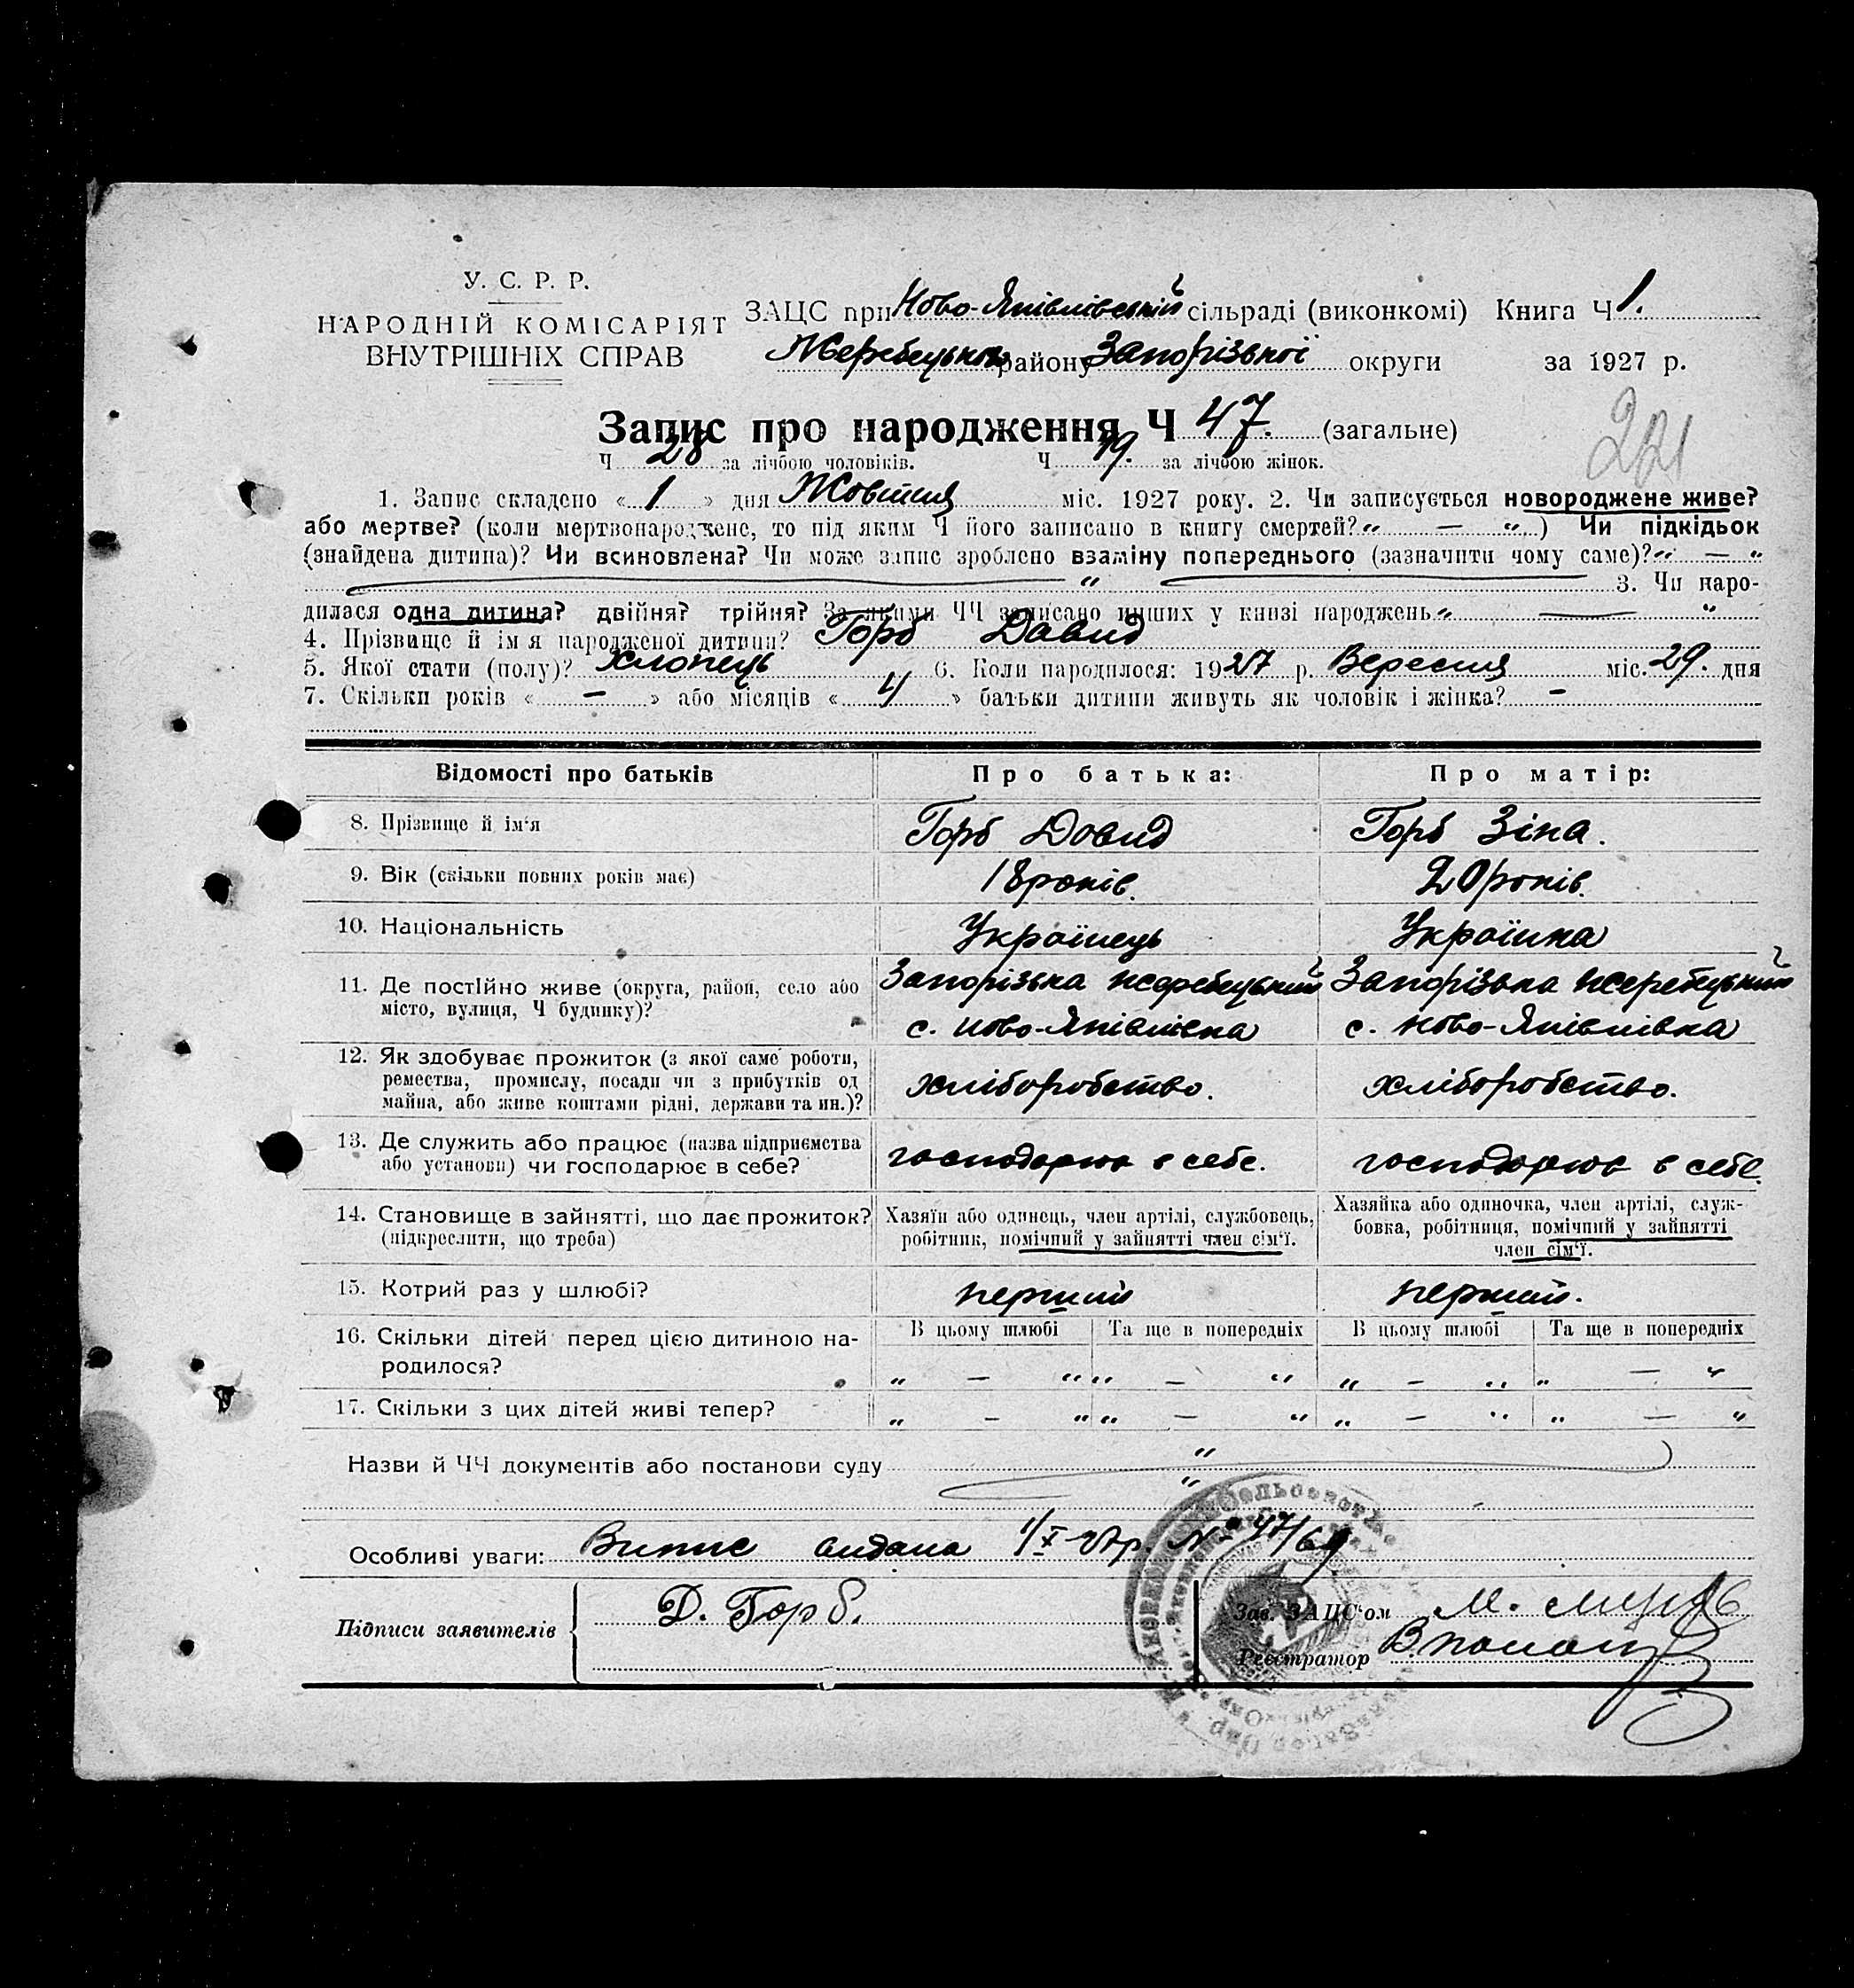 У. С. Р. Р.
НАРОДНІЙ КОМІСАРІЯТ
ВНУТРІШНІХ СПРАВ
ЗАЦС при Ново-Яківлівській сільраді (виконкомі) Книга Ч 1.
Жеребецького району Запорізької округи за 1927 р.
221
Запис про народження Ч 47. (загальне)
Ч 28 за лічбою чоловіків. Ч 19. за лічбою жінок.
1. Запис складено « 1 » дня Жовтня міс. 1927 року. 2. Чи записується новороджене живе?
або мертве? (коли мертвонароджене, то під яким Ч його записано в книгу смертей? „ — “ ) Чи підкідьок
(знайдена дитина)? Чи всиновлена? Чи може запис зроблено взаміну попереднього (зазначити чому саме)? „ — “
“ 3. Чи наро-
дилася одна дитина? двійня? трійня? За якими ЧЧ записано инших у книзі народжень „ — “
4. Прізвище й ім я народженої дитини? Горб Давид
5. Якої стати (полу)? Хлопець 6. Коли народилося: 1927 р. Вересня міс. 29. дня
7. Скільки років « — » або місяців « 4 » батьки дитини живуть як чоловік і жінка? —
Відомості про батьків Про батька: Про матір:
8. Прізвище й ім‘я Горб Довид Горб Зіна.
9. Вік (скільки повних років має) 18 років. 20 років.
10. Національність Українець Українка
11. Де постійно живе (округа, район, село або Запорізька жеребецький Запорізька жеребецький
місто, вулиця, Ч будинку)? с. Ново-Яківлівка с. Ново-Яківлівка
12. Як здобуває прожиток (з якої саме роботи,
ремества, промислу, посади чи з прибутків од хліборобство. хліборобство.
майна, або живе коштами рідні, держави та ин.)?
13. Де служить або працює (назва підприємства
або установи) чи господарює в себе? господарює в себе. господарює в себе.
14. Становище в зайнятті, що дає прожиток? Хазяїн або одинець, член артілі, службовець, Хазяйка або одиночка, член артілі, служ-
(підкреслити, що треба) робітник, помічний у зайнятті член сім‘ї. бовка, робітниця, помічний у зайнятті
член сім‘ї.
15. Котрий раз у шлюбі? перший перший.
16. Скільки дітей перед цією дитиною на- В цьому шлюбі Та ще в попередніх В цьому шлюбі Та ще в попередніх
родилося? „ — “ „ — “ „ — “ „ — “
17. Скільки з цих дітей живі тепер? „ — “ „ — “ „ — “ „ — “
Назви й ЧЧ документів або постанови суду “
“
Особливі уваги: Випис видана 1/X-27р. № 47/69
Підписи заявителів Д. Горб. Зав. ЗАЦС‘ом М.
Реєстратор